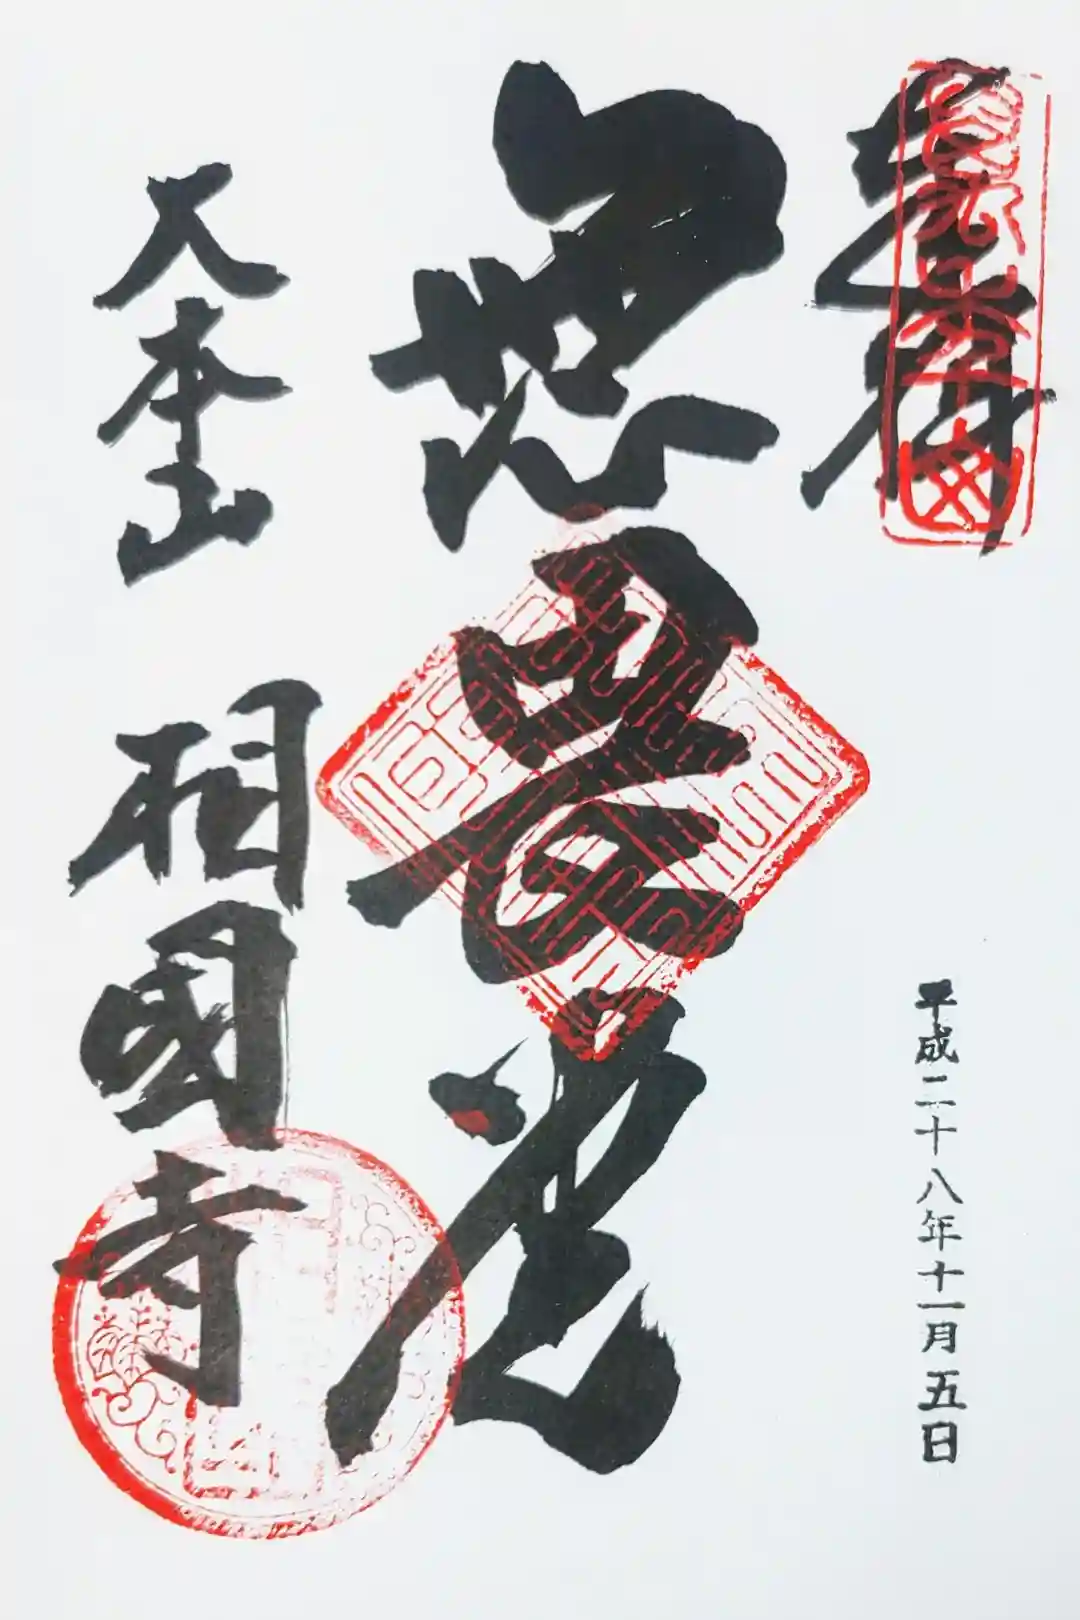 奉拝
平成二十八年十一月五日
無畏堂
大本山 相國寺